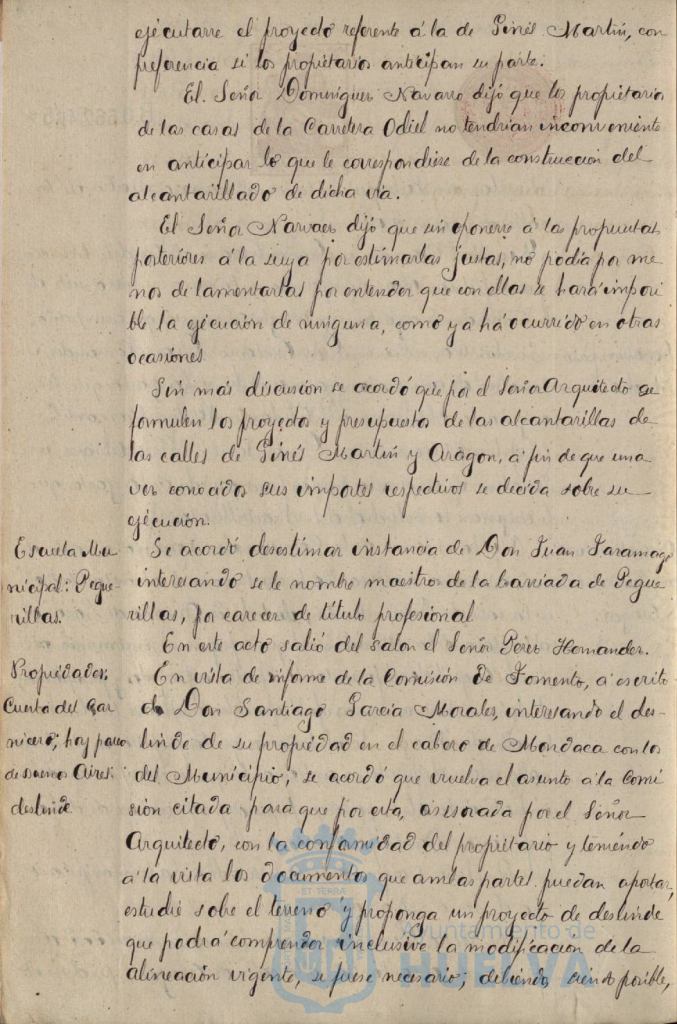 ejecutarse el proyecto referente á la de Ginés Martin, con
preferencia si los propietarios anticipan su parte.
El Señor Dominguez Navarro dijó que los propietarios
de las casas de la Carretera Odiel no tendrian inconveniente
en anticipar lo que le correspondiese de la construccion del
alcantarillado de dicha via.
El Señor Narvaez dijó que sin oponerse á las propuestas
posteriores á la suya por estimarlas justas, no podia por me
nos de lamentarlas por entender que con ellas se hará imposi
ble la ejecución de ninguna, como ya há ocurrido en otras
ocasiones.
Sin más discusión se acordó que por el Señor Arquitecto se
formulen los proyectos y presupuestos de las alcantarillas de
las calles de Ginés Martin y Aragon, á fin de que una
vez conocidos sus importes respectivos se decida sobre su
ejecución.
Escuela Mu
nicipal: Pegue-
rillas.
Se acordó desestimar instancia de Don Juan Taramago
interesando se le nombre maestro de la barriada de Pegue
rillas, por carecer de título profesional
En este acto salió del salon el Señor Perez Hernandez.
Propiedades;
Cuesta del Car
nicero; hoy paseo
de Buenos Aires;
deslinde
En vista de informe de la Comisión de Fomento, á escrito
de Don Santiago Garcia Morales, interesando el des-
linde de su propiedad en el cabezo de Mondaca con los
del Municipio, se acordó que vuelva el asunto á la Comi
sión citada para que por esta, asesorada por el Señor
Arquitecto, con la conformidad del propietario y teniendo
á la vista los documentos que ambas partes puedan aportar,
estudie sobre el terreno y proponga un proyecto de deslinde
que podrá comprender inclusive la modificacion de la
alineación vigente, si fuese necesario; debiendo, siendo posible,
ET TERRÆ
Ayuntamiento de
HUELVA